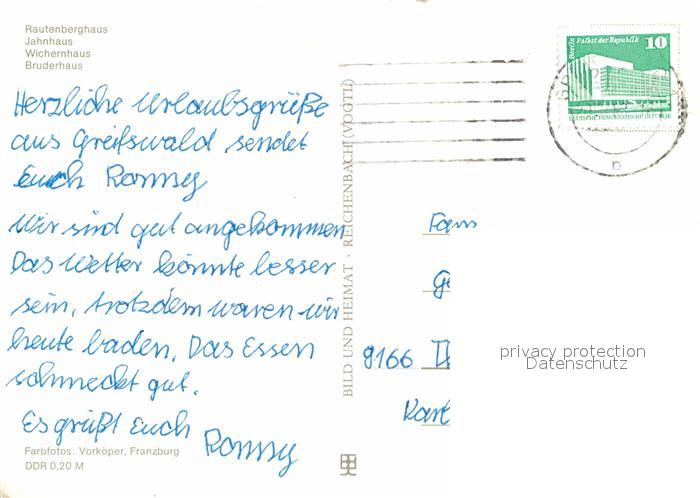 Rautenberghaus
Jahnhaus
Wichernhaus
Bruderhaus
Herzliche Urlaubsgrüße
aus Greifswald sendet
Euch Ronny
Wir sind gut angekommen
Das Wetter könnte besser
sein, trotzdem waren wir
heute baden. Das Essen
schmeckt gut.
Es grüßt Euch
Ronny
Farbfotos: Vorköper, Franzburg
DDR 0,20 M
BILD UND HEIMAT · REICHENBACH (VOGTL)
Berlin Palast der Republik
10
DEUTSCHE DEMOKRATISCHE REPUBLIK
b
Fam
9166
privacy protection
Datenschutz